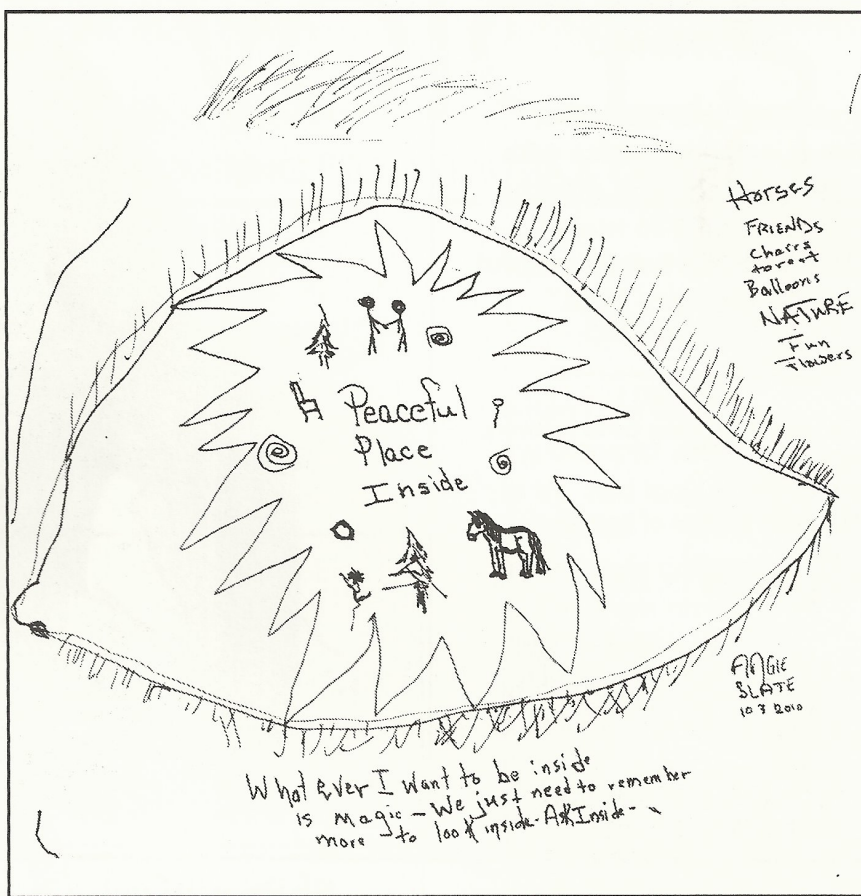 Horses
FRIENDS
Chairs
forest
Balloons
NATURE
Fun
Flowers
Peaceful
Place
Inside
ANGIE
SLATE
10 3 2010
What Ever I want to be inside
is magic - We just need to remember
more to look inside - Ask Inside -